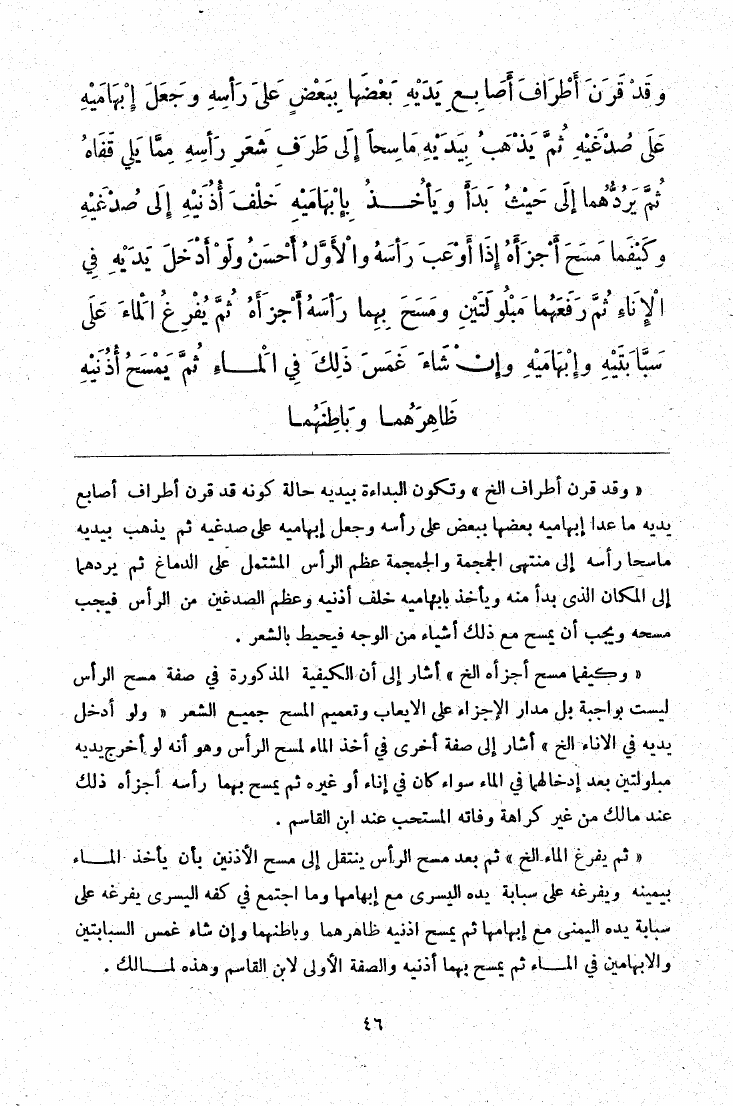 وَقَدْ قَرَنَ أَطْرَافَ أَصَابِعِ يَدَيْهِ بَعْضَهَا بِبَعْضٍ عَلَى رَأْسِهِ وَجَعَلَ إِبْهَامَيْهِ
عَلَى صُدْغَيْهِ ثُمَّ يَذْهَبُ بِيَدَيْهِ مَاسِحاً إِلَى طَرَفِ شَعَرِ رَأْسِهِ مِمَّا يَلِي قَفَاهُ
ثُمَّ يَرُدُّهُما إِلَى حَيْثُ بَدَأَ وَيَأْخُــذُ بِإِبْهَامَيْهِ خَلْفَ أُذُنَيْهِ إِلَى صُدْغَيْهِ
وَكَيْفَما مَسَحَ أَجْزَأَهُ إِذَا أَوْعَبَ رَأْسَهُ وَالْأَوَّلُ أَحْسَنُ وَلَوْ أَدْخَلَ يَدَيْهِ فِي
الْإِنَاءِ ثُمَّ رَفَعَهُمَا مَبْلُولَتَيْنِ وَمَسَحَ بِهِما رَأْسَهُ أَجْزَأَهُ ثُمَّ يُفْرِغُ الْمَاءَ عَلَى
سَبَّابَتَيْهِ وَإِبْهَامَيْهِ وَإِنْ شَاءَ غَمَسَ ذَلِكَ فِي الْمَــاءِ ثُمَّ يَمْسَحُ أُذُنَيْهِ
ظَاهِرَهُمـا وَبَاطِنَهُمـا
« وقد قرن أطراف الخ » وتكون البداءة بيديه حالة كونه قد قرن أطراف أصابع
يديه ما عدا إبهاميه بعضها ببعض على رأسه وجعل إبهاميه على صدغيه ثم يذهب بيديه
ماسحا رأسه إلى منتهى الجمجمة والجمجمة عظم الرأس المشتمل على الدماغ ثم يردهما
إلى المكان الذى بدأ منه ويأخذ بابهاميه خلف أذنيه وعظم الصدغين من الرأس فيجب
مسحه ويجب أن يمسح مع ذلك أشياء من الوجه فيحيط بالشعر .
« وكيفما مسح أجزأه الخ » أشار إلى أن الكيفية المذكورة في صفة مسح الرأس
ليست بواجبة بل مدار الإجزاء على الايعاب وتعميم المسح جميع الشعر « ولو أدخل
يديه في الاناء الخ » أشار إلى صفة أخرى في أخذ الماء لمسح الرأس وهو أنه لو أخرج يديه
مبلولتين بعد إدخالهما في الماء سواء كان في إناء أو غيره ثم يمسح بهما رأسه أجزأه ذلك
عند مالك من غير كراهة وفاته المستحب عند ابن القاسم .
« ثم يفرغ الماء الخ » ثم بعد مسح الرأس ينتقل إلى مسح الأذنين بأن يأخذ المــاء
بيمينه ويفرغه على سبابة يده اليسرى مع إبهامها وما اجتمع في كفه اليسرى يفرغه على
سبابة يده اليمنى مع إبهامها ثم يمسح اذنيه ظاهرهما وباطنهما وإن شاء غمس السبابتين
والابهامين في المــاء ثم يمسح بهما أذنيه والصفة الأولى لابن القاسم وهذه لمــالك .
٤٦